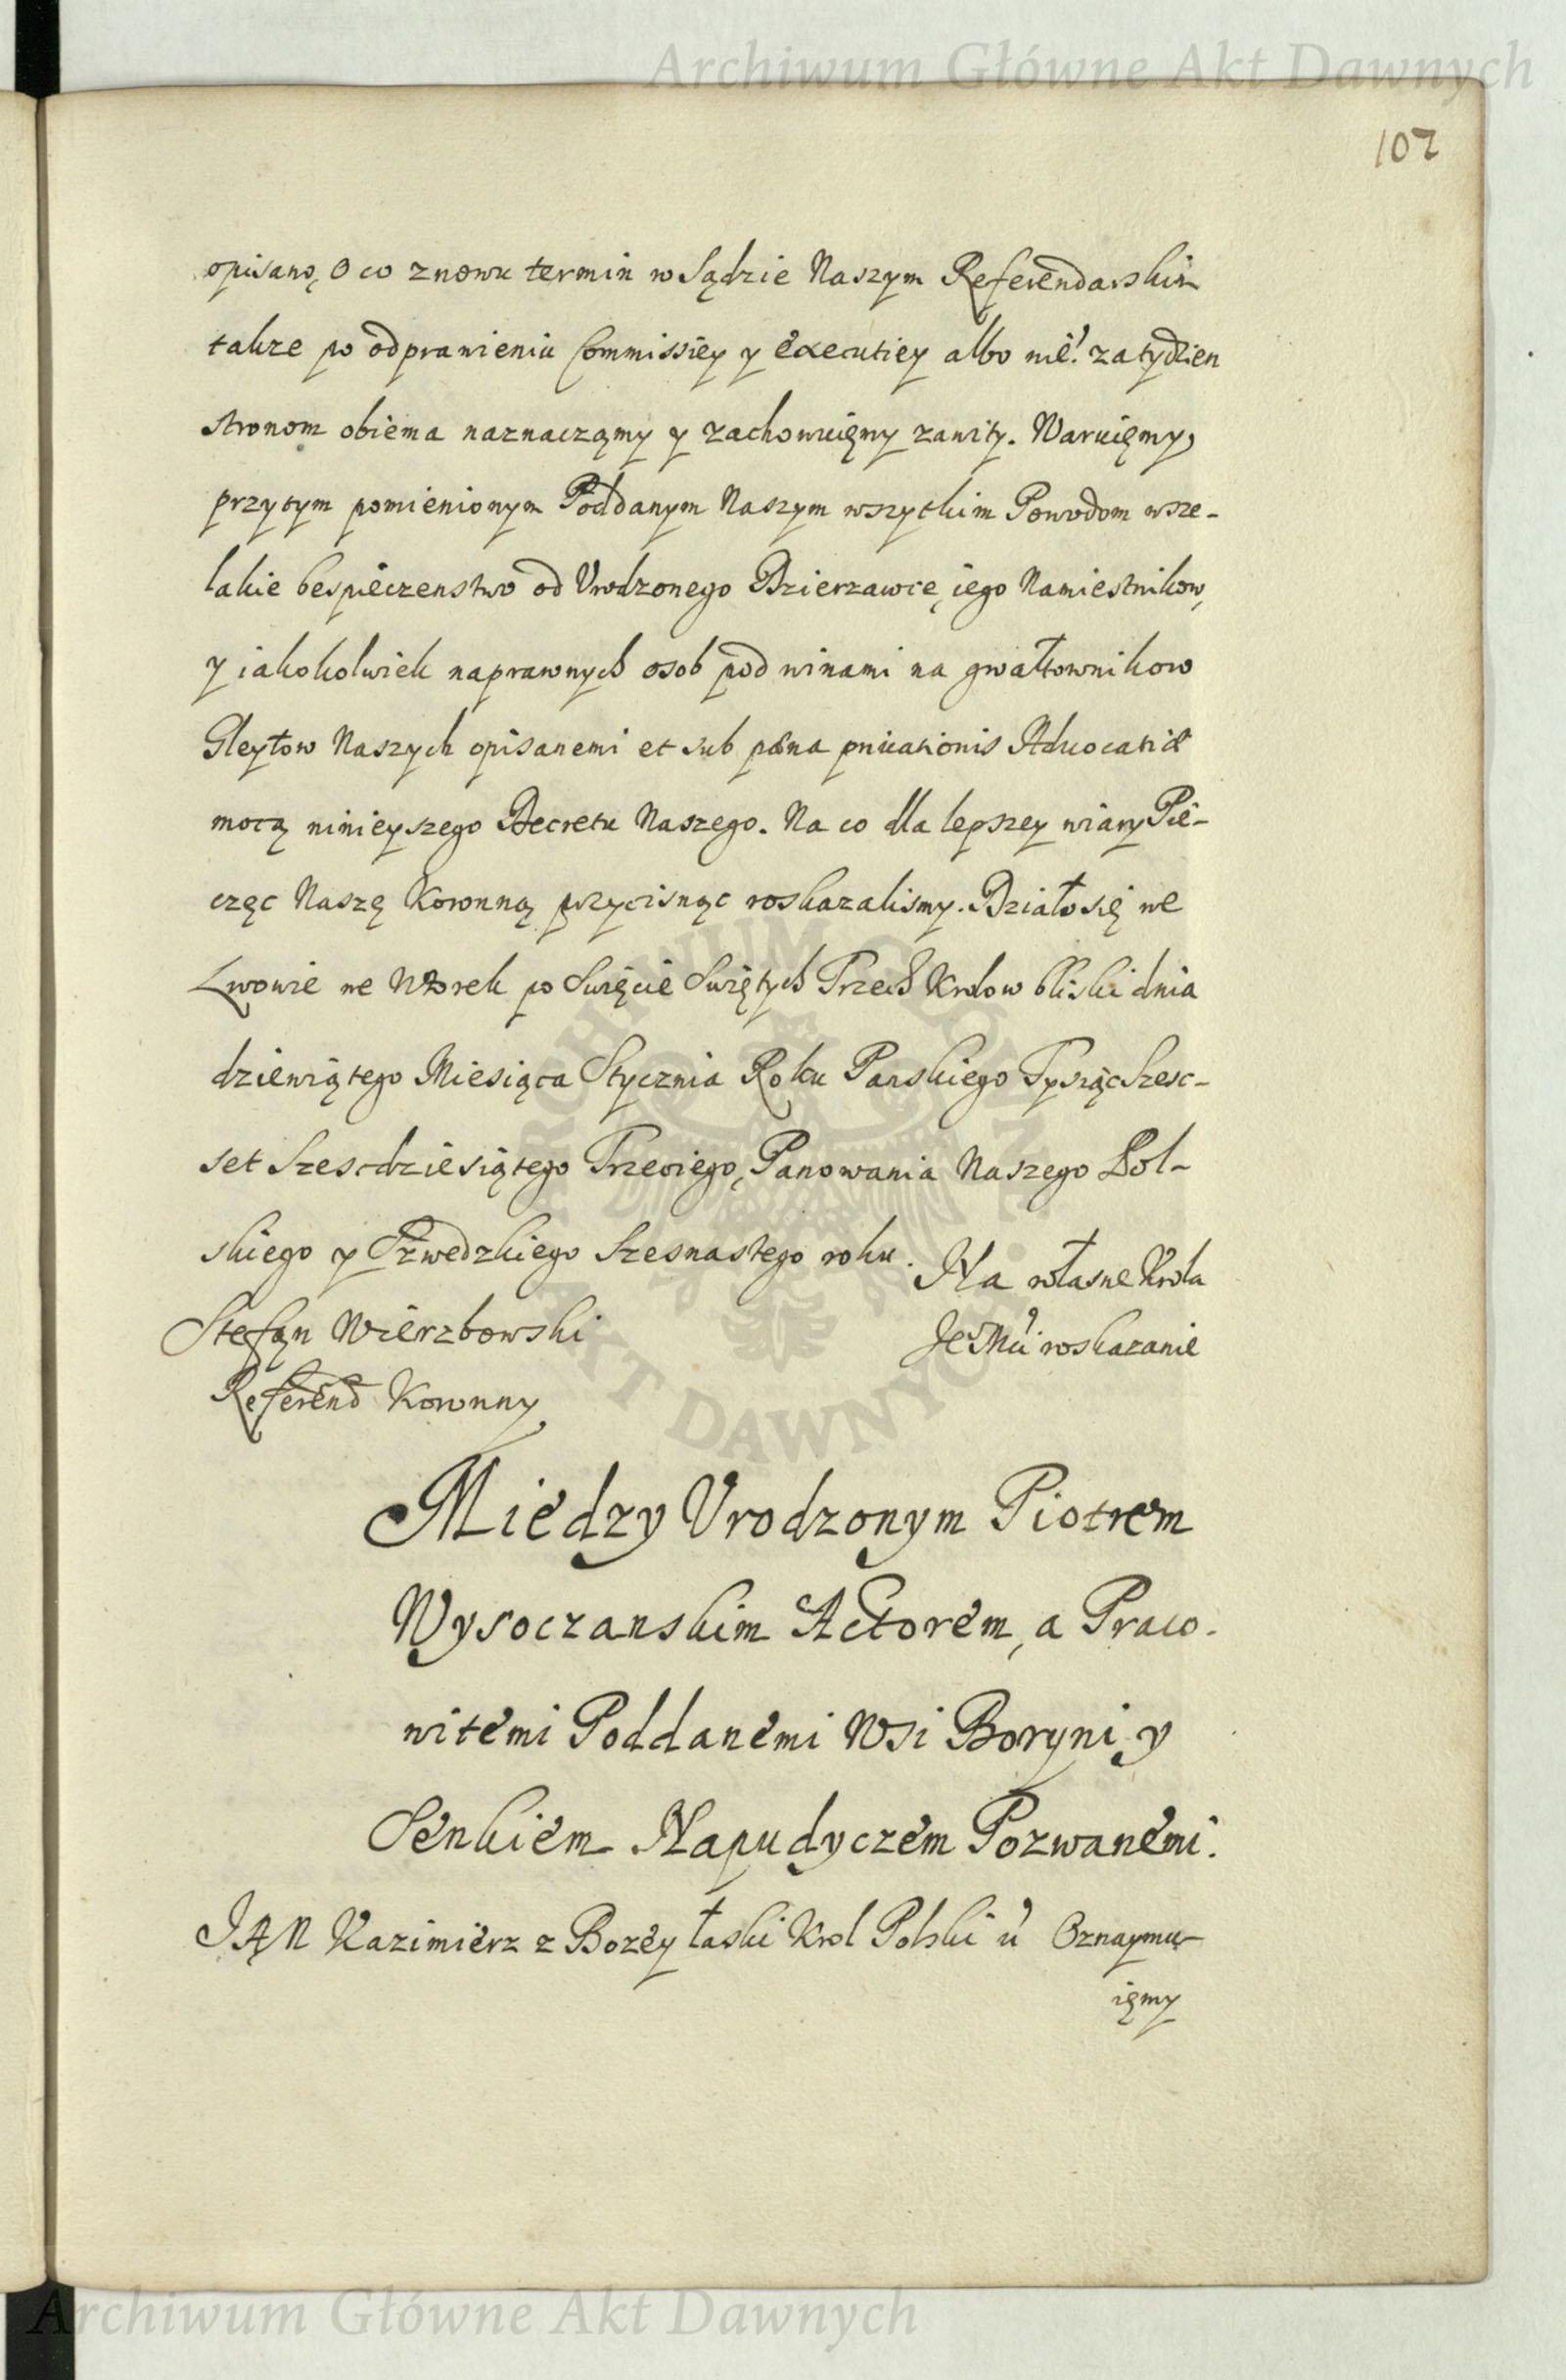 Archiwum Główne Akt Dawnych
102
opisano, O co znowu termin w Sądzie Naszym Referendarskim
takze po odprawieniu Commissiey y executiey albo nie! za tydzien
stronom obiema naznaczamy y zachowuięmy zawity. Waruięmy,
przytym pomienionym Poddanym Naszym wszytkim Powodom wsze-
lakie bespieczenstwo od Vrodzonego Dzierzawce, iego Namiestnikow,
y iakokolwiek naprawnych osob pod winami na gwałtownikow
Gleytow Naszych opisanemi et sub pæna privationis Advocatiæ
mocą ninieyszego Decretu Naszego. Na co dla lepszey wiary Pie-
częc Naszę Koronną przycisnąc roskazalismy. Działo się we
Lwowie we Wtorek po Swięcie Swiętych Trzech Krolow bliski dnia
dziewiątego Miesiąca Stycznia Roku Panskiego Tysiąc Szesc-
set Szescdziesiątego Trzeciego, Panowania Naszego Pol-
skiego y Szwedzkiego Szesnastego roku.
Na własne Krola
Stefan Wierzbowski
JeoMci roskazanie
Referend Koronny
Miedzy Vrodzonym Piotrem
Wysoczanskim Actorem, a Praco-
witemi Poddanemi Wsi Boryni y
Senkiem Napudyczem Pozwanemi.
JAN Kazimierz z Bozey łaski Krol Polski &c Oznaymu-
ięmy
ARCHIWUM GŁÓWNE AKT DAWNYCH
Archiwum Główne Akt Dawnych